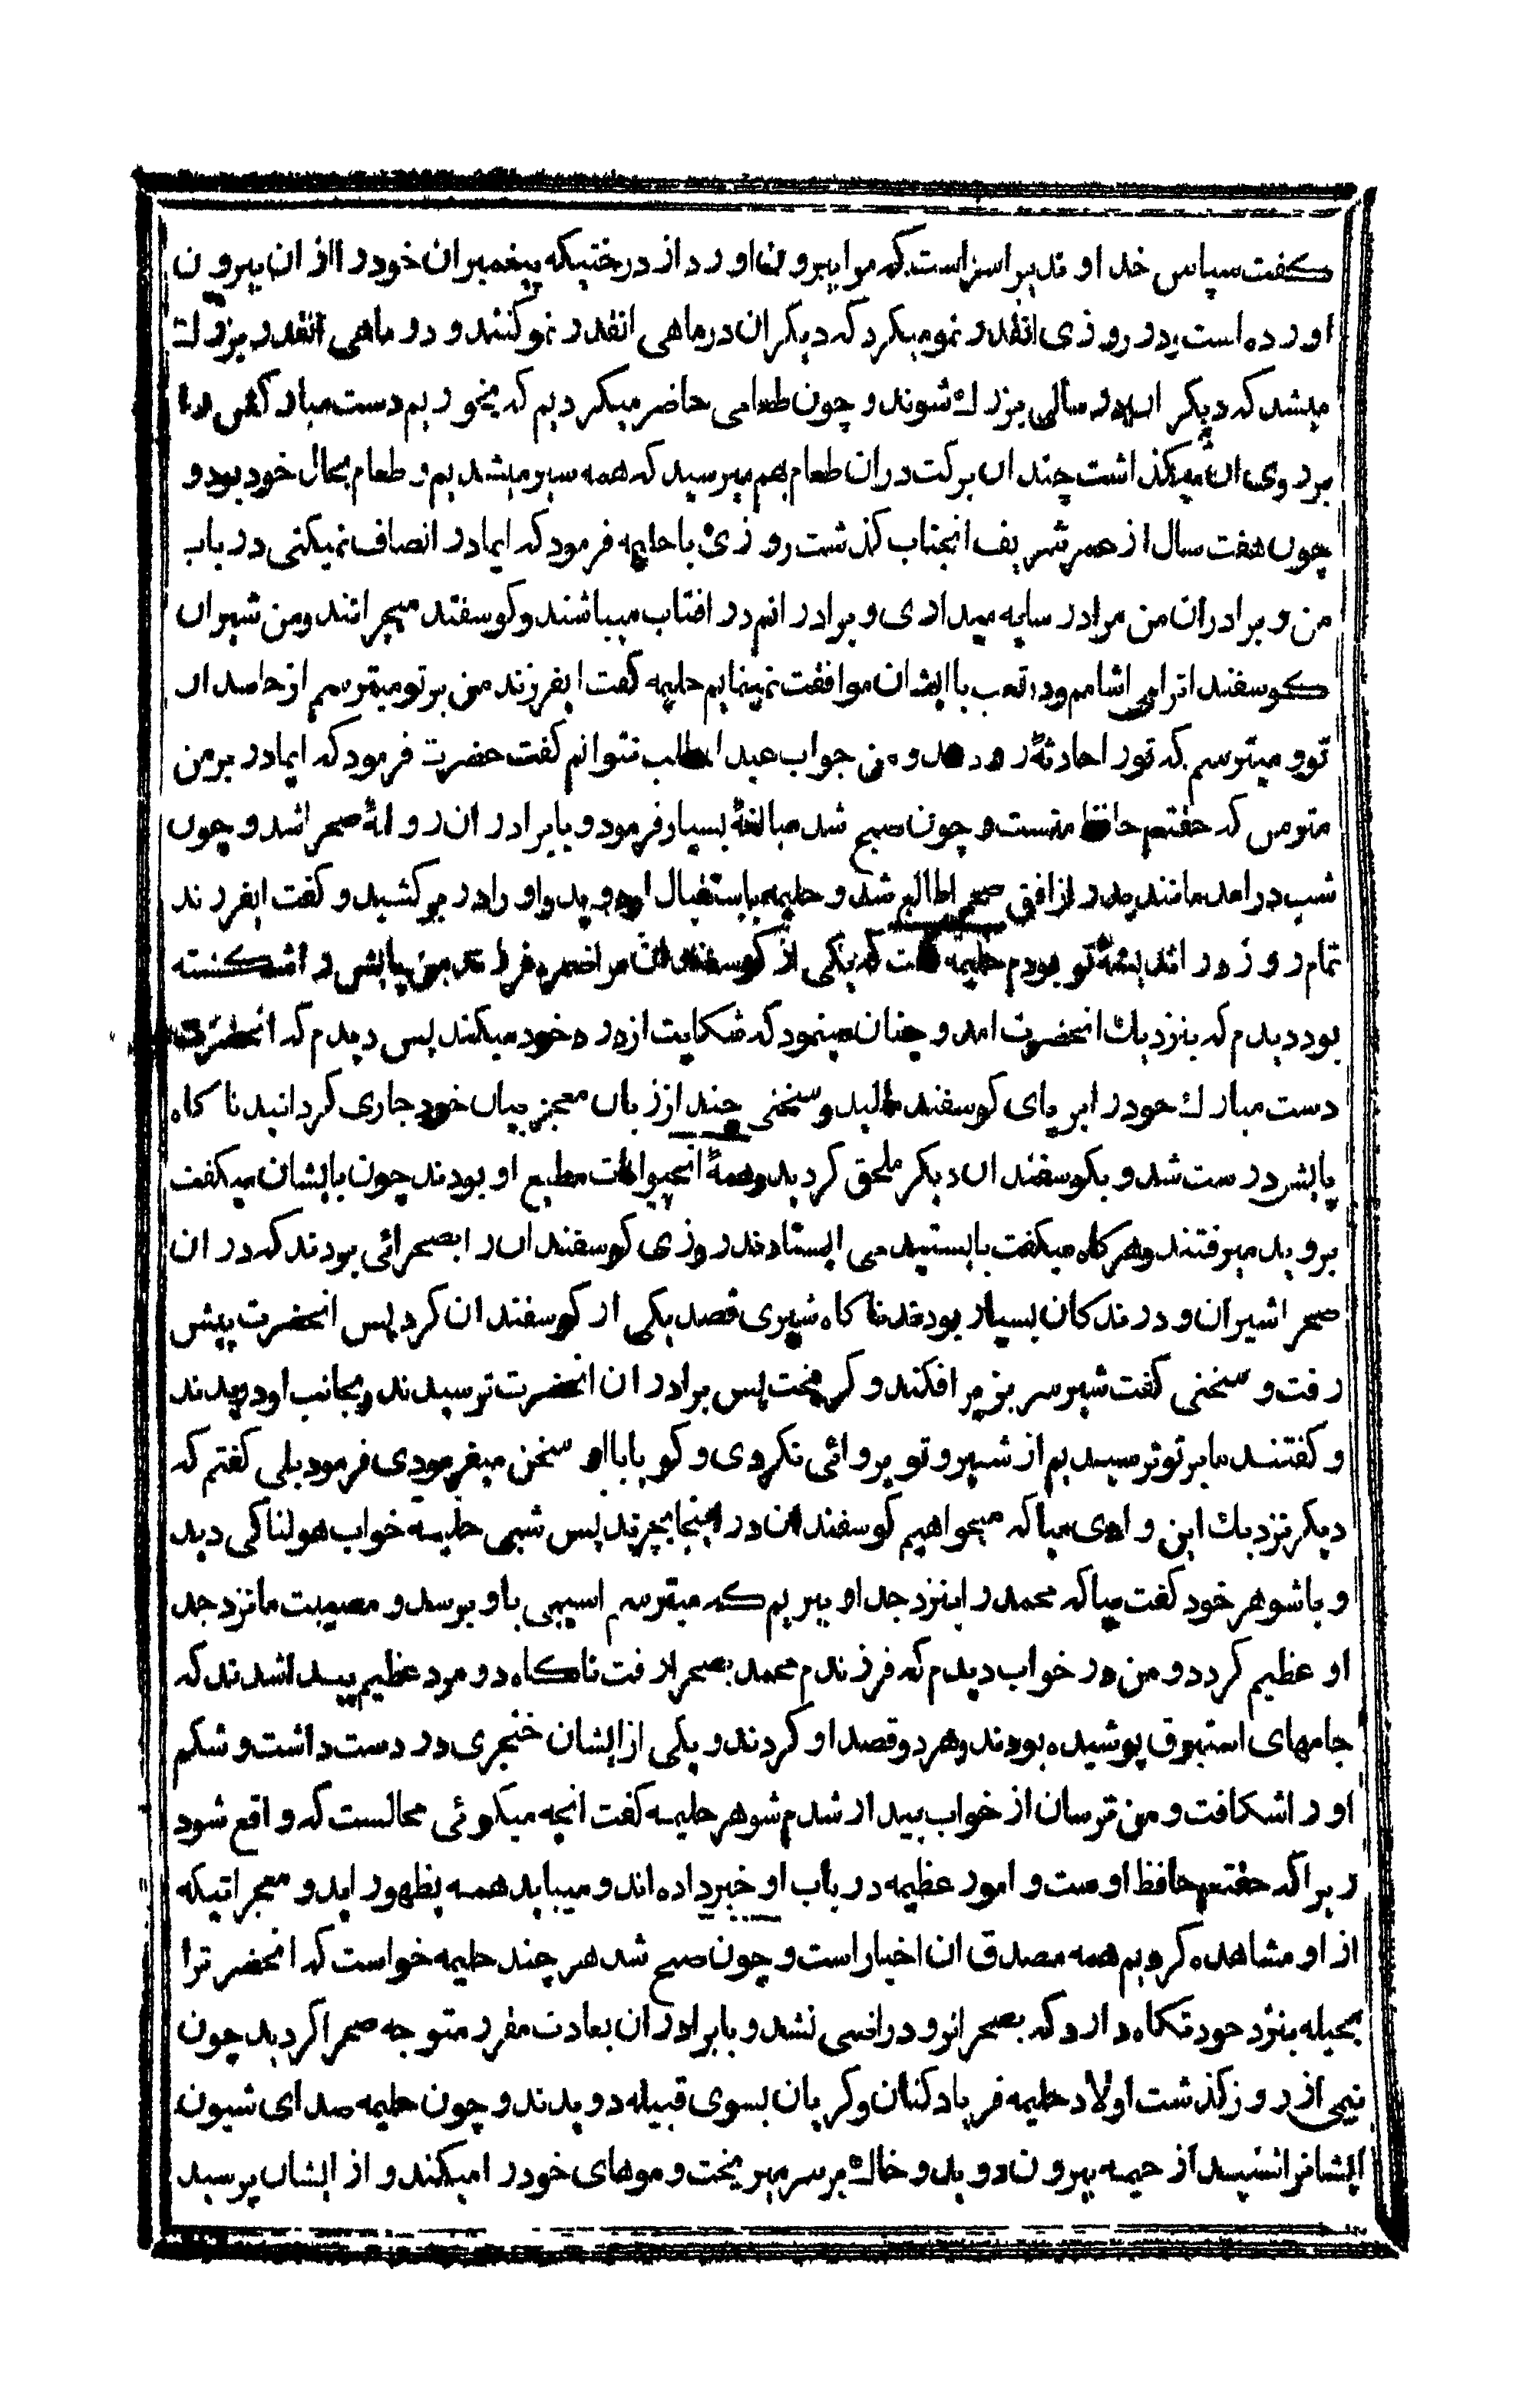 كفت سپاس خداوندیرا سزاست که مرا بیرون اورد از درختیکه پیغمبران خود را از ان بیرون
اورده است و در روزی انقدر نمو میکرد که دیکران در ماهی انقدر نمو کنند و در ماهی انقدر بزرك
میشد که دیکران در سالی بزرك شوند و چون طعامی حاضر میکردیم که بخوریم دست مبارکش را
بر روی ان میکذاشت چندان برکت در ان طعام بهم میرسید که همه سیر میشدیم و طعام بحال خود بود و
چون هفت سال از عمر شریف انجناب کذشت روزی با حلیمه فرمود که ایمادر انصاف نمیکنی در باب
من و برادران من مرا در سایه میداری و برادرانم در افتاب میباشند و کوسفند میچرانند و من شیر ان
کوسفندانرا می اشامم و در تعب با ایشان موافقت نمینمایم حلیمه کفت ایفرزند من بر تو میترسم از حاسدان
تو و میترسم که تو را حادثهٔ رو دهد و من جواب عبدالمطلب نتوانم کفت حضرت فرمود که ایمادر بر من
مترس که حقتعم حافظ منست و چون صبح شد مبالغهٔ بسیار فرمود و با برادران روانهٔ صحرا شد و چون
شب درامد مانند بدر از افق صحرا طالع شد و حلیمه باستقبال او دوید و او را در بر کشید و کفت ایفرزند
تمام روز در اندیشهٔ تو بودم حلیمه کفت که یکی از کوسفندان مرا ضمره فرزند من پایش را شکسته
بود دیدم که بنزدیك انحضرت امد و چنان مینمود که شکایت از درد خود میکند پس دیدم که انحضرت
دست مبارك خود را بر پای کوسفند مالید و سخنی چند از زبان معجز بیان خود جاری کردانید ناکاه
پایش درست شد و بکوسفندان دیکر ملحق کردید و همهٔ انحیوانات مطیع او بودند چون بایشان میکفت
بروید میرفتند و هرکاه میکفت بایستید می ایستادند روزی کوسفندان را بصحرائی بودند که در ان
صحرا شیران و درندکان بسیار بودند ناکاه شیری قصد یکی از کوسفندان کرد پس انحضرت پیش
رفت و سخنی کفت شیر سر بزیر افکند و کریخت پس برادران انحضرت ترسیدند و بجانب او دویدند
و کفتند ما بر تو ترسیدیم از شیر و تو پروائی نکردی و کویا با او سخن میفرمودی فرمود بلی کفتم که
دیکر نزدیك این وادی میا که میخواهیم کوسفندان در اینجا بچرند پس شبی حلیمه خواب هولناکی دید
و با شوهر خود کفت بیا که محمد را بنزد جد او ببریم که میترسم اسیبی باو برسد و مصیبت ما نزد جد
او عظیم کردد و من در خواب دیدم که فرزندم محمد بصحرا رفت ناکاه دو مرد عظیم پیدا شدند که
جامهای استبرق پوشیده بودند و هر دو قصد او کردند و یکی از ایشان خنجری در دست داشت و شکم
او را شکافت و من ترسان از خواب بیدار شدم شوهر حلیمه کفت انچه میکوئی محالست که واقع شود
زیرا که حقتعم حافظ اوست و امور عظیمه در باب او خبر داده اند و میباید همه بظهور اید و معجزاتیکه
از او مشاهده کردیم همه مصدق ان اخبار است و چون صبح شد هر چند حلیمه خواست که انحضرترا
بحیله بنزد خود نکاه دارد که بصحرا نرود راضی نشد و با برادران بعادت مقرر متوجه صحرا کردید چون
نیمی از روز کذشت اولاد حلیمه فریاد کنان و کریان بسوی قبیله دویدند و چون حلیمه صدای شیون
ایشانرا شنید از خیمه بیرون دوید و خاك بر سر میریخت و موهای خود را میکند و از ایشان پرسید